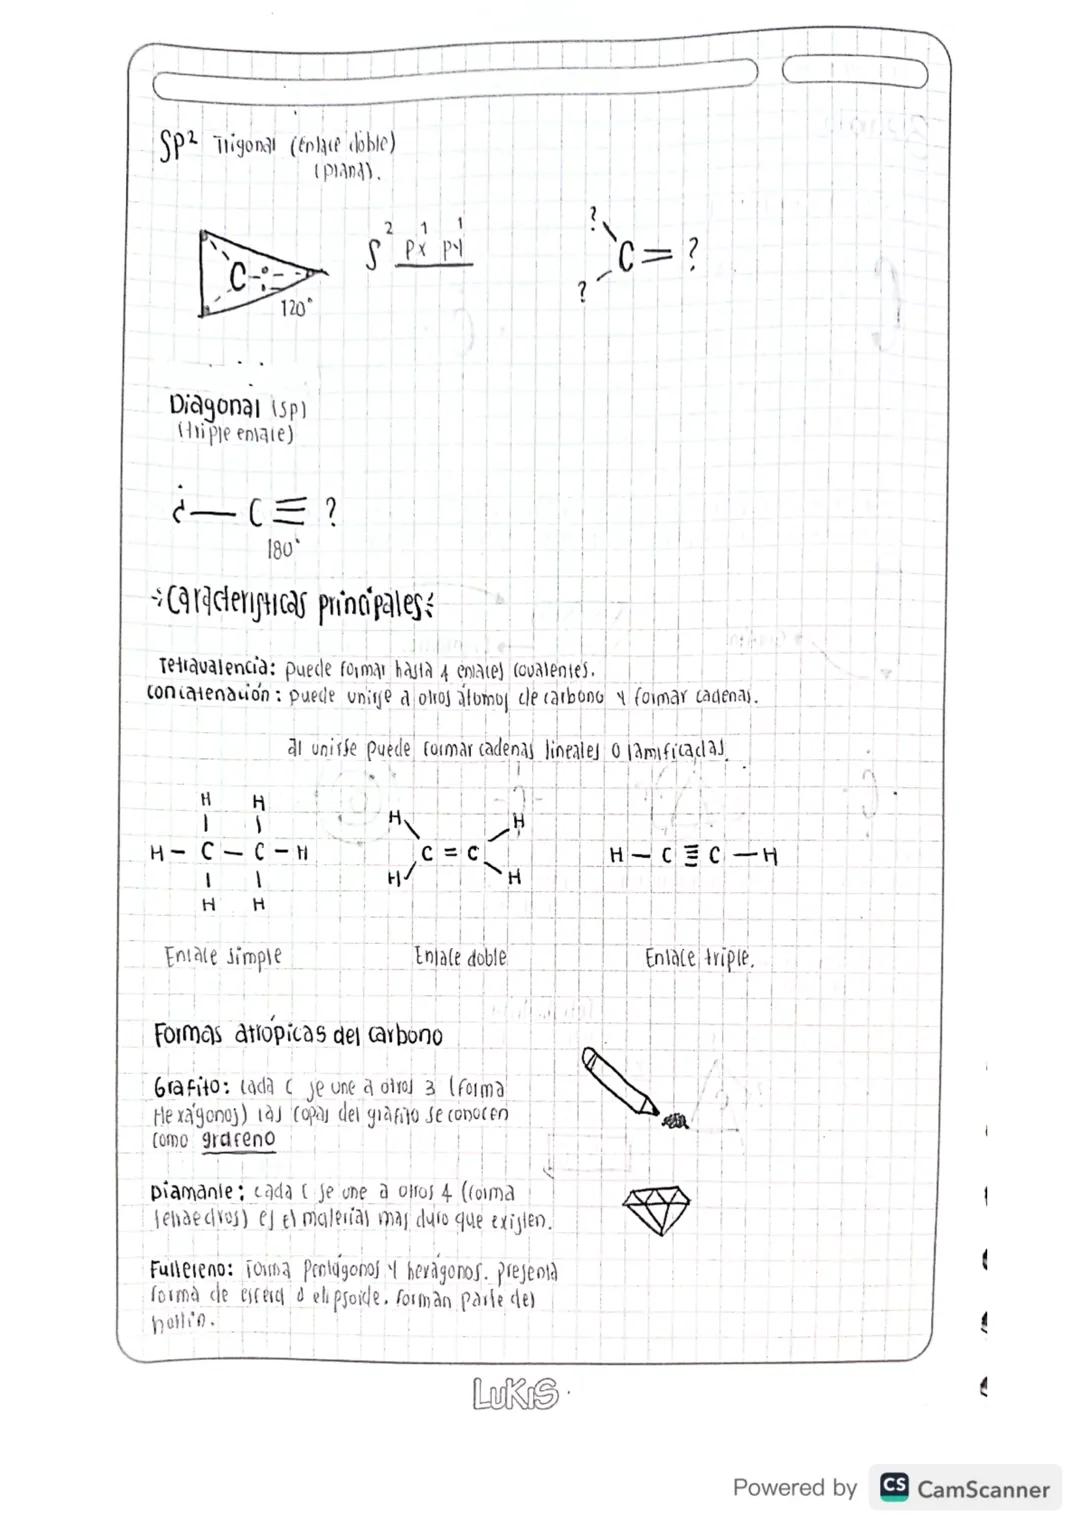 SP² Trigonal (Enlace doble)
(plana).
C
120°
S² Px¹ Py¹
?
C = ?
?
Diagonal (sp)
(triple enlace)
¿ — C ≡ ?
180°
Caracteristicas principales:
Tetravalencia: puede formar hasta 4 enlaces covalentes.
Concatenación: puede unirse a otros átomos de carbono y formar cadenas.
al unirse puede formar cadenas lineales o ramificadas.
H H
H – C – C – H
H H
H H
C = C
H H
H – C ≡ C – H
Enlace simple Enlace doble Enlace triple.
Formas atrópicas del carbono
Grafito: Cada C se une a otros 3 (forma
Hexágonos) las copas del grafito se conocen
como grafeno
Diamante: cada C se une a otros 4 (forma
es el material mas duro que existen.
Fullereno: Forma Pentágonos y hexágonos. presenta
forma de esfera o elipsoide. Forman parte del
hollín.
LUKIS
Powered by CS CamScanner